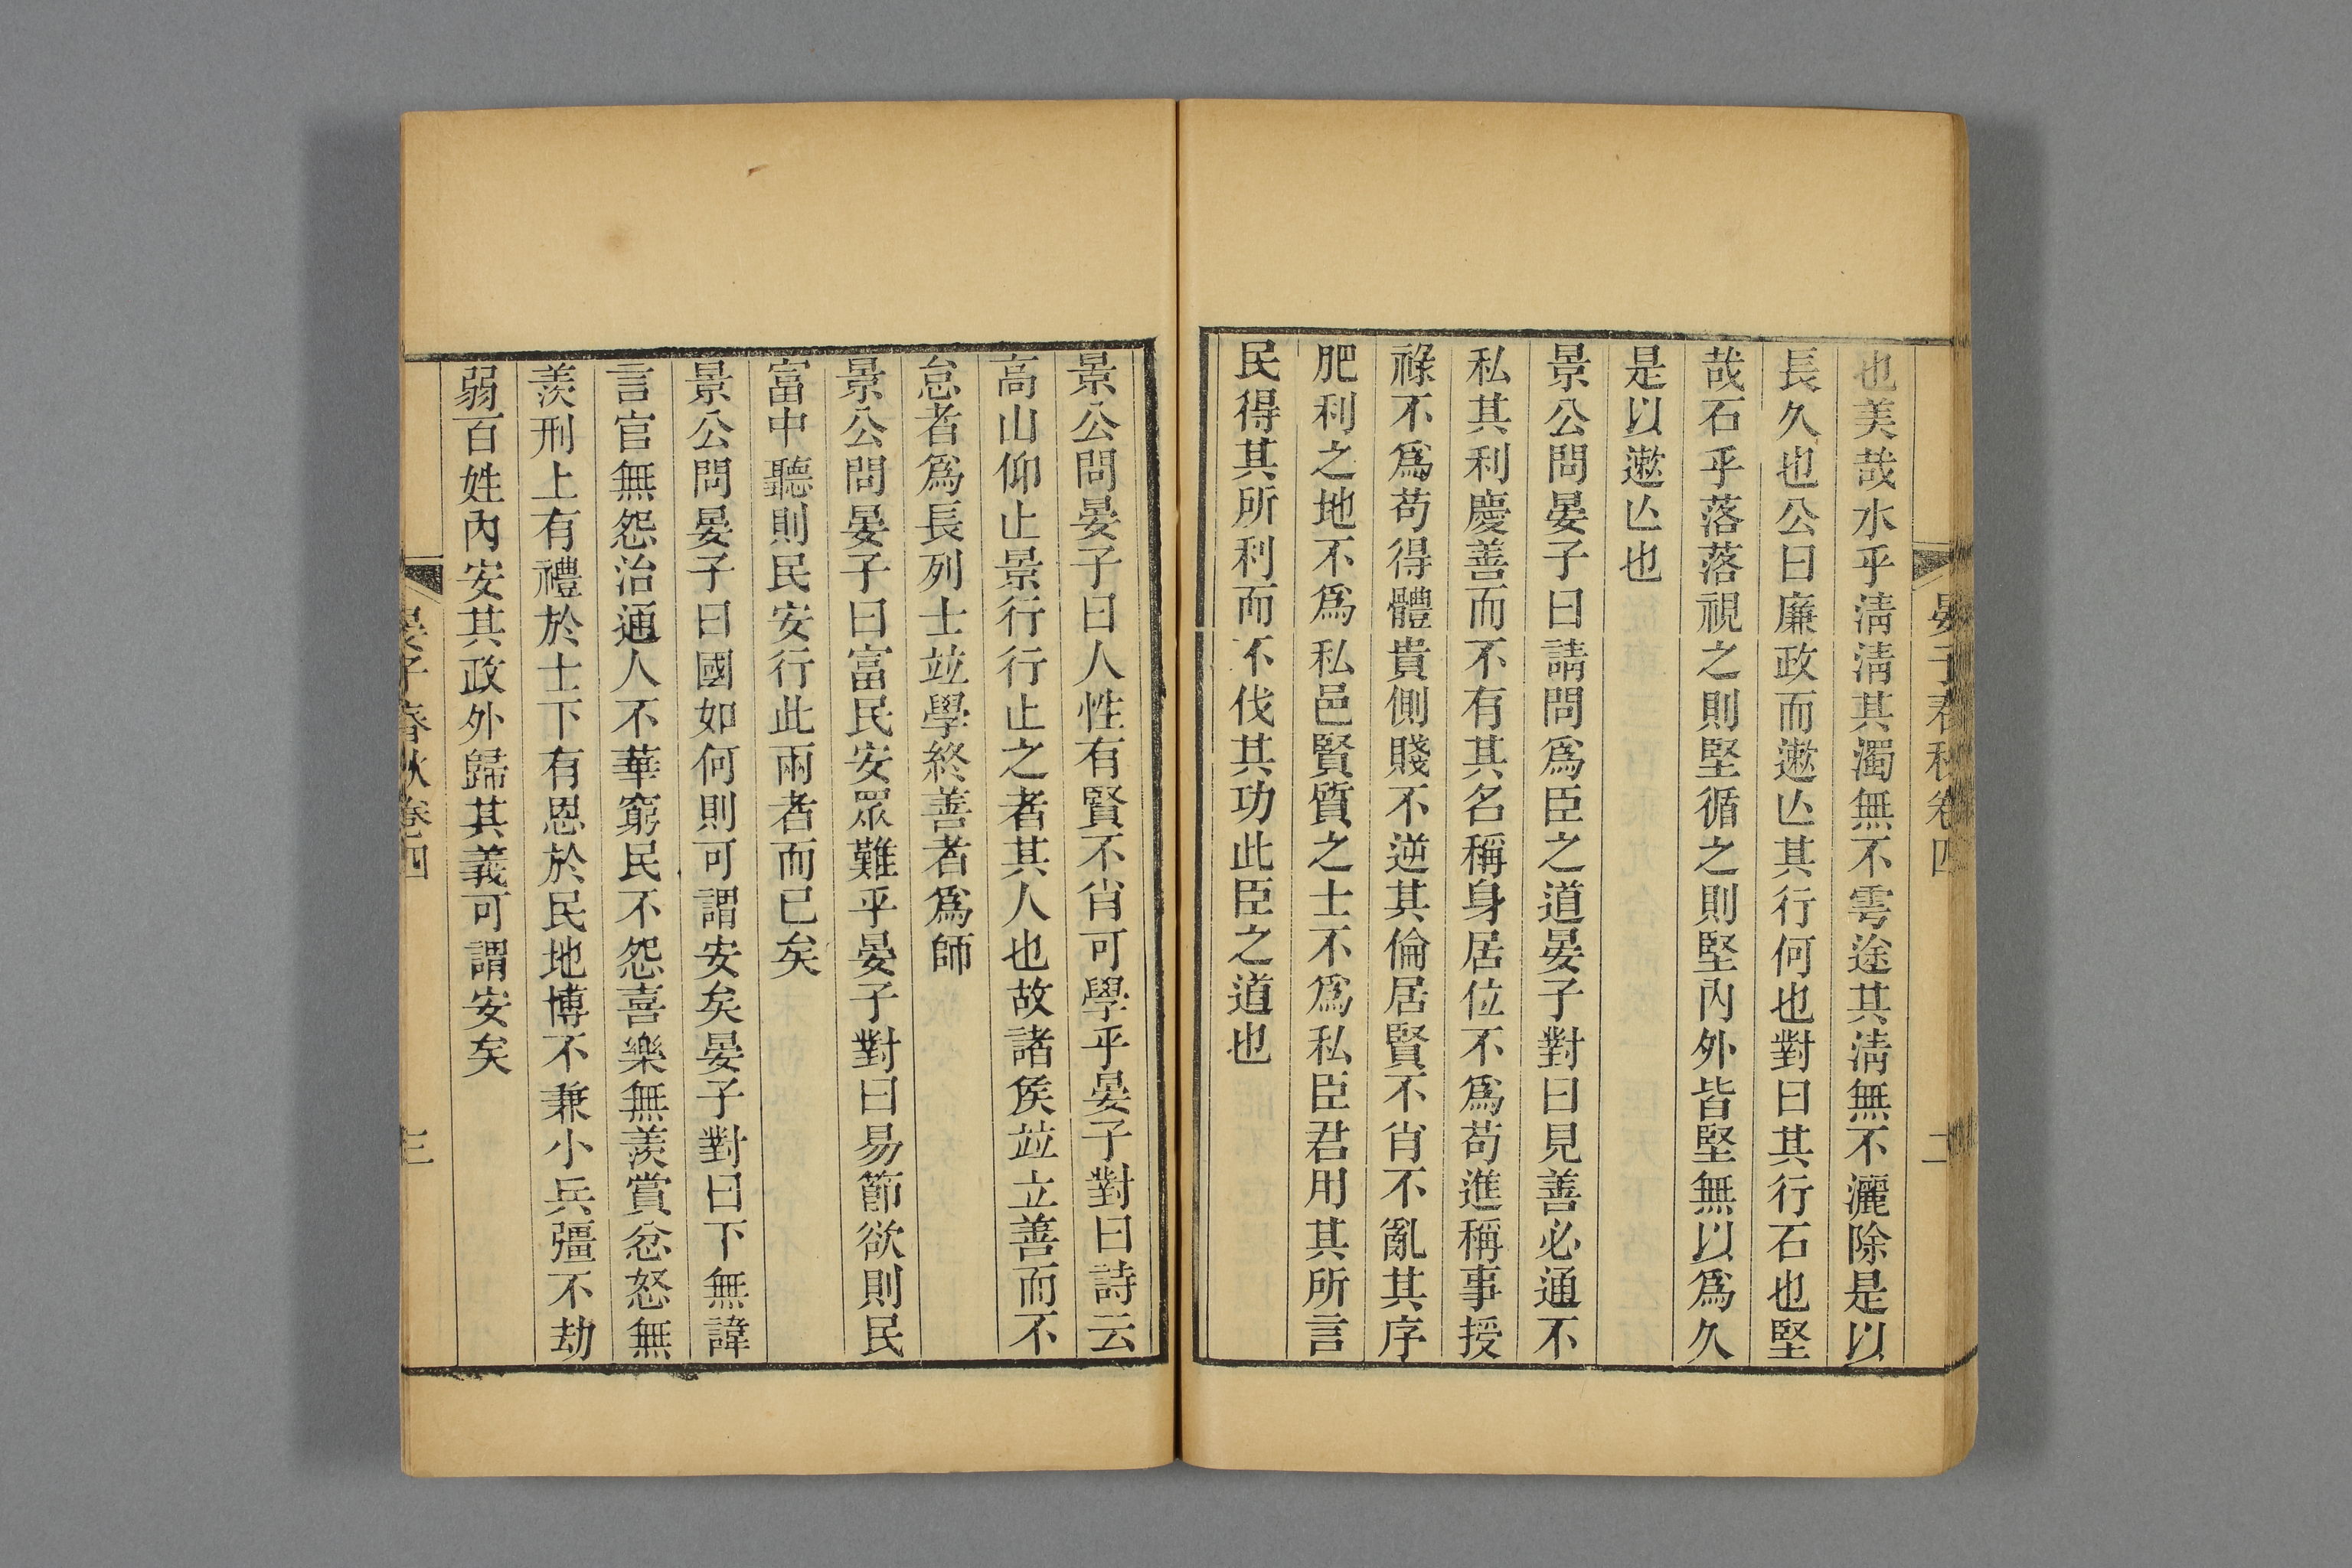 晏子春秋卷四
二
也美哉水乎淸淸其濁無不雩途其淸無不灑除是以
長久也公曰廉政而遬亾其行何也對曰其行石也堅
哉石乎落落視之則堅循之則堅內外皆堅無以爲久
是以遬亾也
景公問晏子曰請問爲臣之道晏子對曰見善必通不
私其利慶善而不有其名稱身居位不爲苟進稱事授
祿不爲苟得體貴側賤不逆其倫居賢不肖不亂其序
肥利之地不爲私邑賢質之士不爲私臣君用其所言
民得其所利而不伐其功此臣之道也
景公問晏子曰人性有賢不肖可學乎晏子對曰詩云
高山仰止景行行止之者其人也故諸侯竝立善而不
怠者爲長列士竝學終善者爲師
景公問晏子曰富民安眾難乎晏子對曰易節欲則民
富中聽則民安行此兩者而已矣
景公問晏子曰國如何則可謂安矣晏子對曰下無諱
言官無怨治通人不華窮民不怨喜樂無羨賞忿怒無
羨刑上有禮於士下有恩於民地博不兼小兵彊不劫
弱百姓內安其政外歸其義可謂安矣
晏子春秋卷四
三